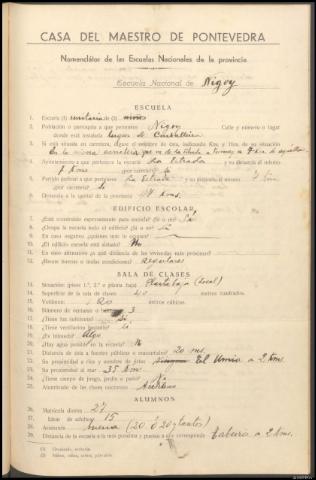 CASA DEL MAESTRO DE PONTEVEDRA
Nomenclátor de las Escuelas Nacionales de la provincia
Escuela Nacional de Nigoy
ESCUELA
1. Escuela (1) unitaria de (2) niños
2. Población o parroquia a que pertenece Nigoy Calle y número o lugar
donde está instalada lugar de Carballeira
3. Si está situada en carretera, dígase el nombre de ésta, indicando Km. y Hm. de su situación
4. Ayuntamiento a que pertenece la escuela La Estrada y su distancia al mismo
7 Kms por carretera sí
5. Partido judicial a que pertenece La Estrada y su distancia al mismo 7 Km
por carretera sí
6. Distancia a la capital de la provincia Kms.
EDIFICIO ESCOLAR
7. ¿Está construido expresamente para escuela? Sí o no?
8. ¿Ocupa la escuela todo el edificio? Sí o no?
9. En caso negativo ¿quiénes más lo ocupan?
10. ¿El edificio escuela está aislado? No
11. En caso afirmativo ¿a qué distancia de las viviendas más próximas?
12. ¿Reune buenas o malas condiciones? regulares
SALA DE CLASES
13. Situación (pisos 1.º, 2.º o planta baja) Planta baja (local)
14. Superficie de la sala de clases 40 metros cuadrados.
15. Volúmen: 120 metros cúbicos.
16. Número de ventanas 3
17. ¿Tiene luz suficiente? Sí
18. ¿Tiene ventilación bastante? sí
19. ¿Es húmeda? Algo
20. ¿Hay agua potable en la escuela? No
21. Distancia de ésta a fuentes públicas o manantiales 20 ms.
22. Su proximidad a ríos y nombre de éstos El Umia a 2 Kms.
23. Su proximidad al mar 35 Km
24. ¿Tiene campo de juego, jardín o patio?
25. Alumbrado de las clases nocturnas
ALUMNOS
26. Matrícula diurna 27
27. Idem de adultos 15
28. Asistencia buena (20 ó 20 y tantos)
29. Distancia de la escuela a la más próxima y pueblo a que corresponde Tabeirós a 2 Kms.
(1) Graduada, unitaria
(2) Niños, niñas, mixta, párvulos